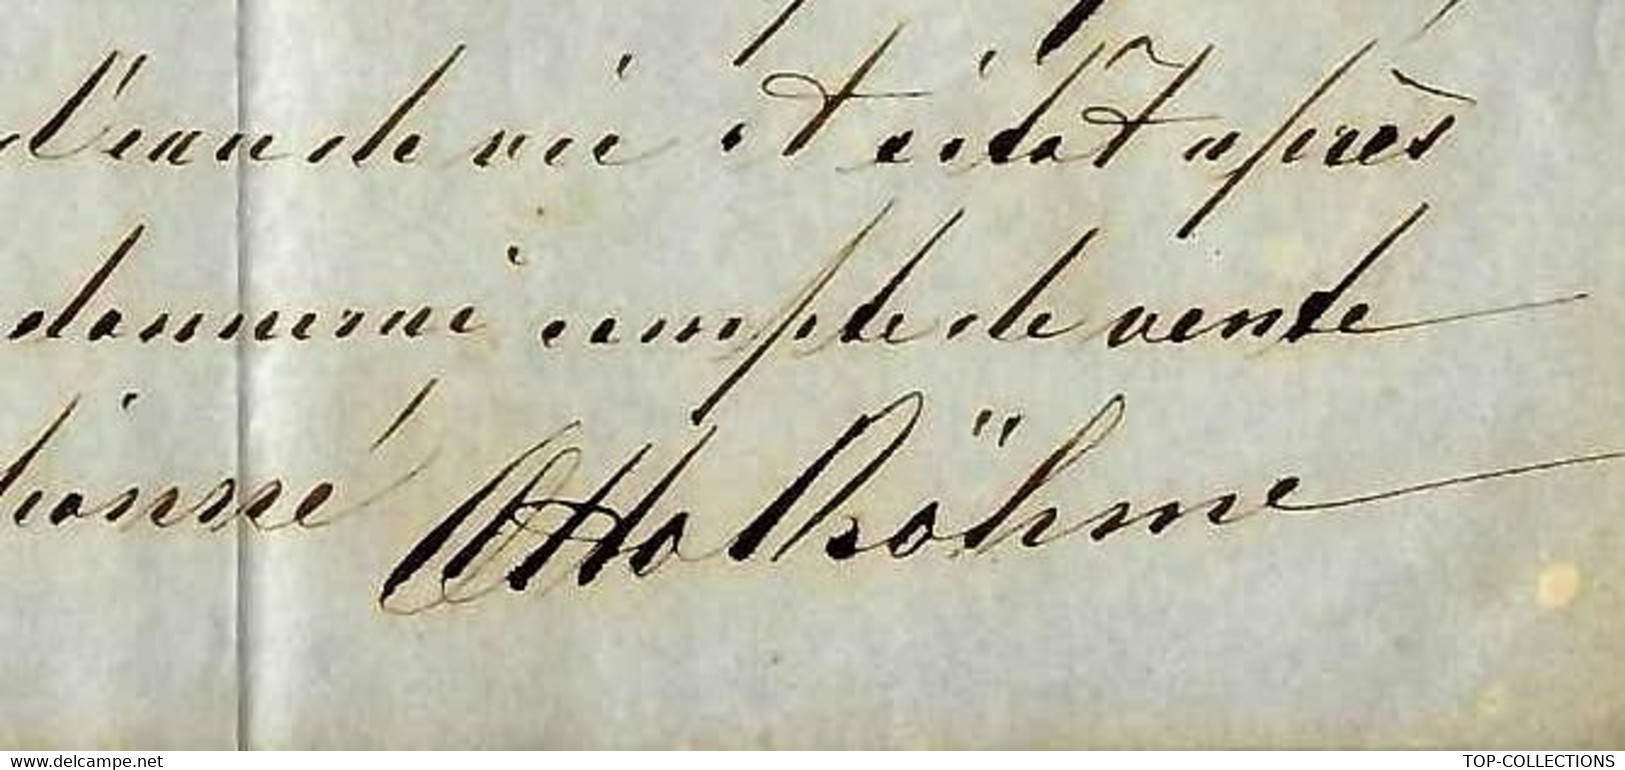 l'eau de vie et aidot après
donnerai compte de vente
tionné Otto Böhme
www.delcampe.net
TOP-COLLECTIONS